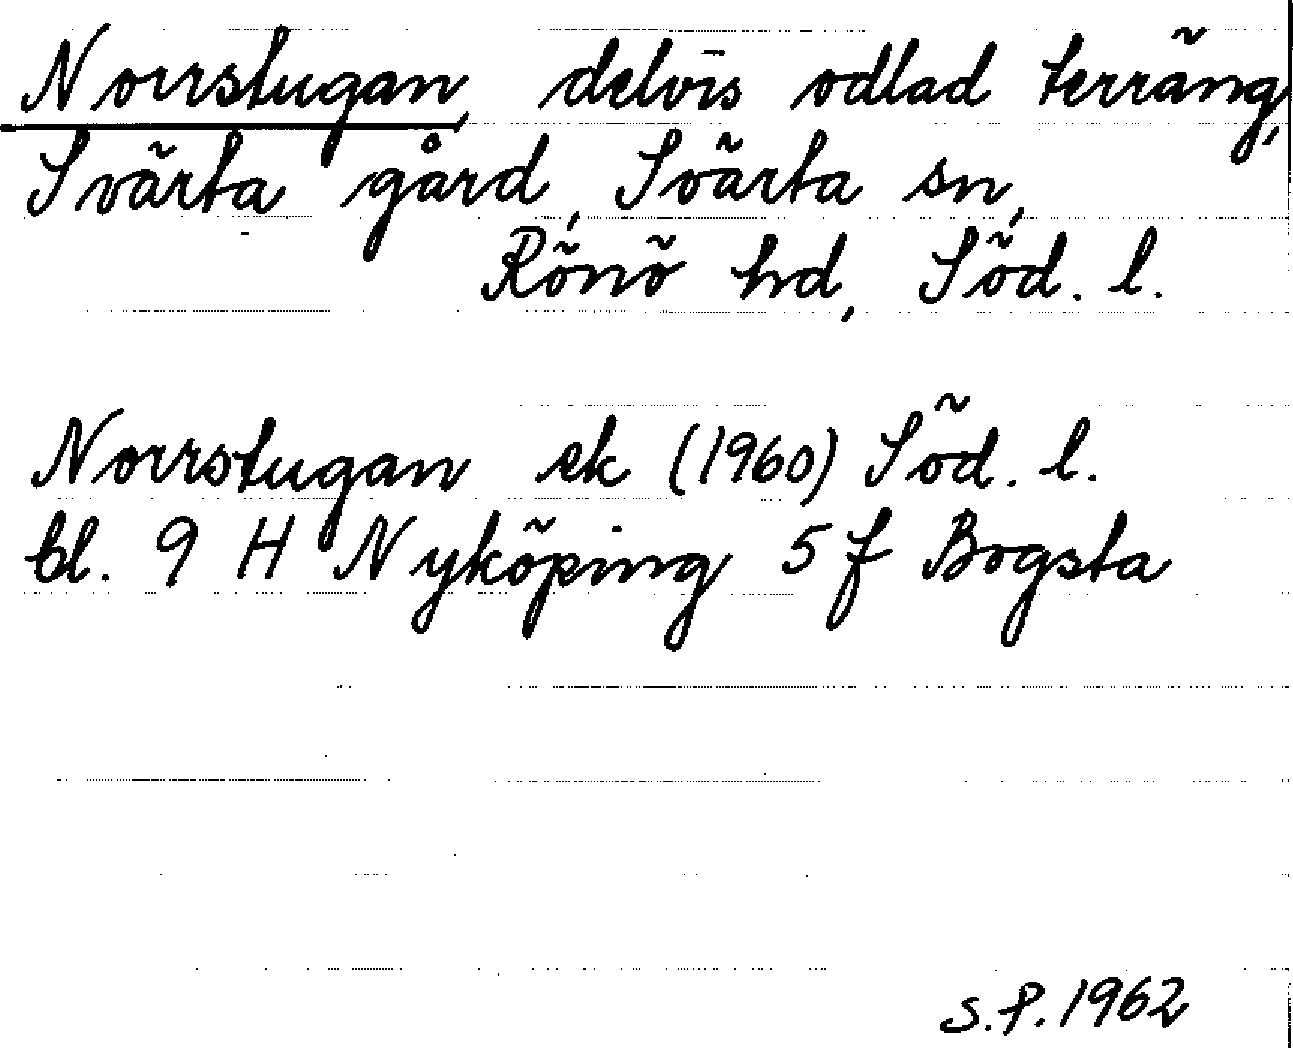 Norrstugan, delvis odlad terräng,
Svärta gård, Svärta sn,
Rönö hd, Söd. l.
Norrstugan ek (1960) Söd. l.
bl. 9 H Nyköping 5 f Bogsta
S.P. 1962